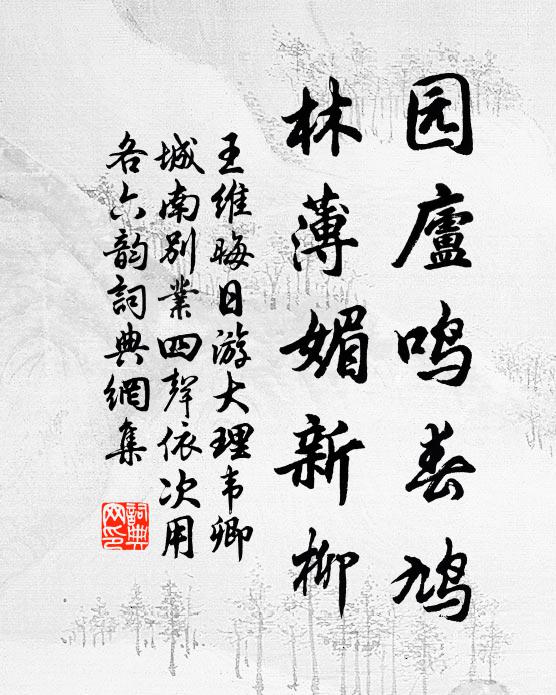 园廬鸣春鸠
林薄媚新柳
王维晦日游大理韦卿
城南别業四聲依次用
各六韵詞典網集
詞典网印